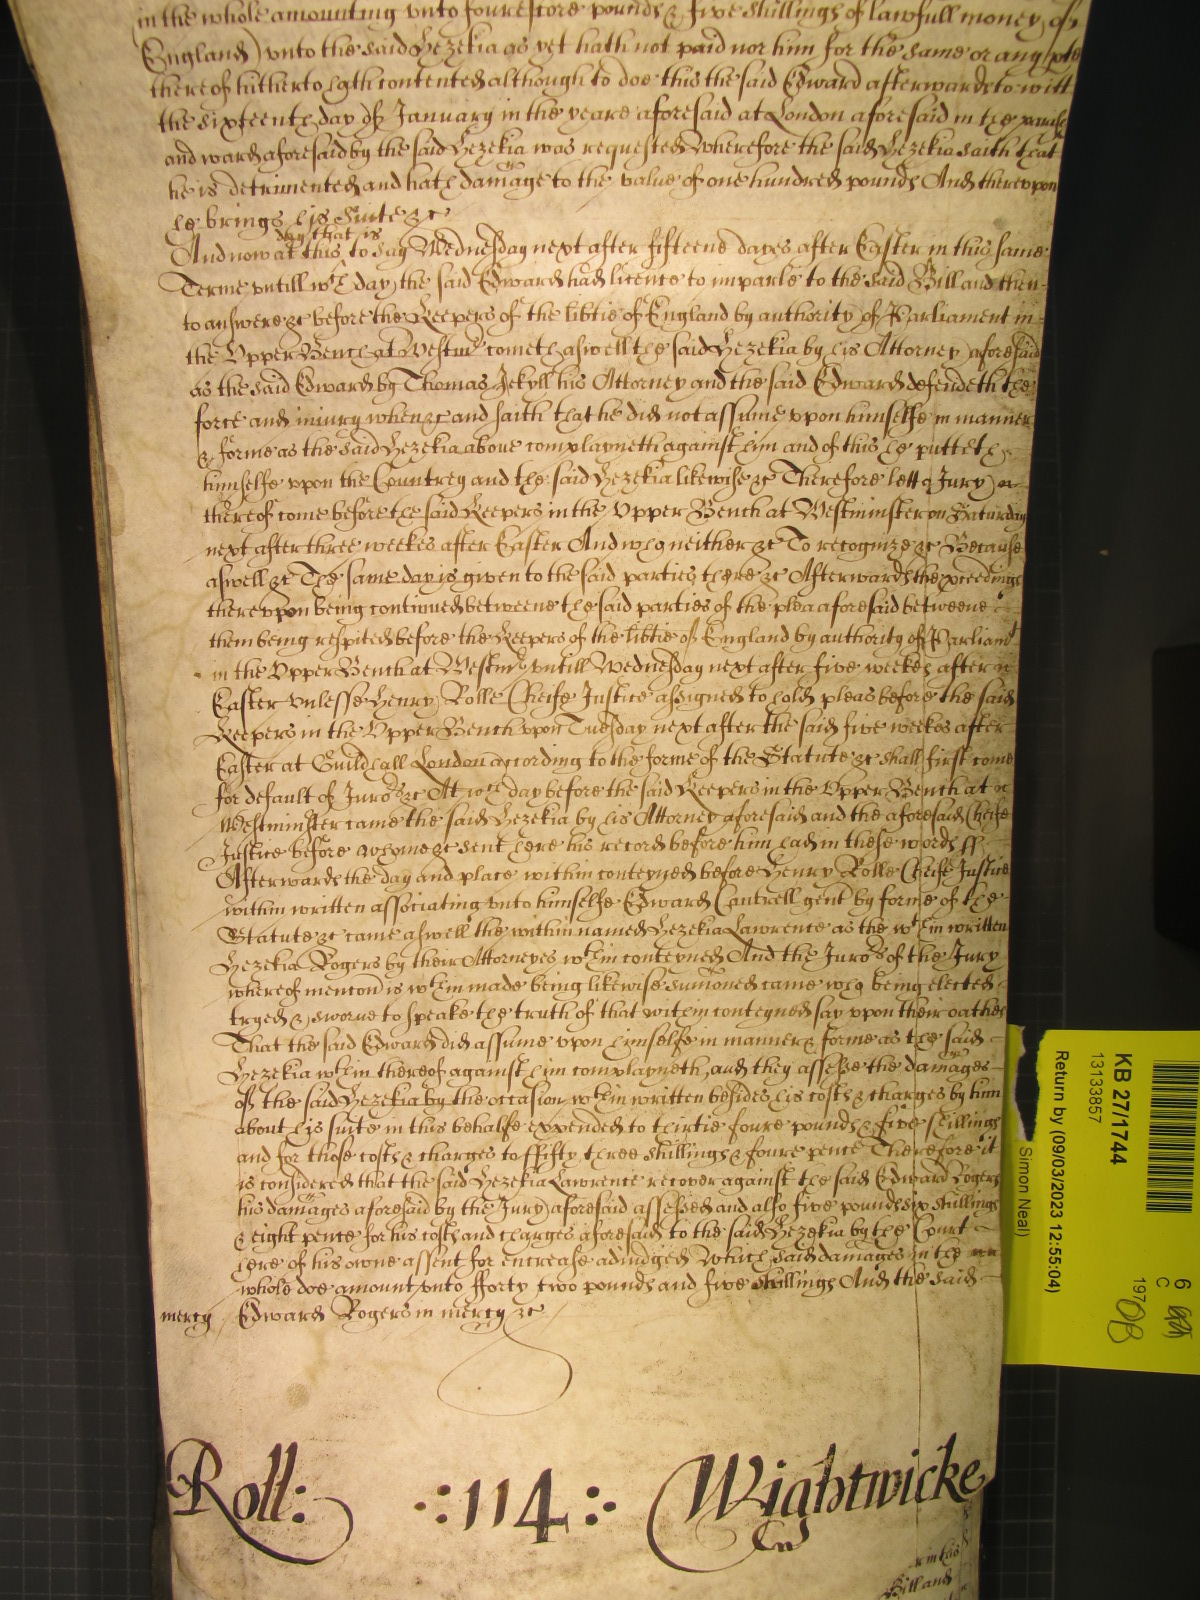 in the whole amounting unto fourescore pounds & five shillings of lawfull money of
England) unto the said Hezekia as yet hath not paid nor him for the same or any pte
thereof hitherto hath contented although to doe this the said Edward afterwards to witt
the sixteenth day of January in the yeare aforesaid at London aforesaid in the parish
and ward aforesaid by the said Hezekia was requested Wherefore the said Hezekia saith that
he is detrimented and hath damage to the value of one hundred pounds And thereupon
he brings his Suite &c
day that is
And now at this to say Wednesday next after fifteene dayes after Easter in this same
Terme untill wch day the said Edward had licence to imparle to the said Bill and then
to answere &c before the Keepers of the libtie of England by authority of Parliament in
the Upper Bench at Westmr cometh aswell the said Hezekia by his Attorney aforesaid
as the said Edward by Thomas Jekyll his Attorney and the said Edward defendeth the
force and iniury when &c and saith that he did not assume upon himselfe in manner
& forme as the said Hezekia above complayneth against him and of this he putteth
himselfe upon the Countrey and the said Hezekia likewise &c Therefore lett a Jury
thereof come before the said Keepers in the Upper Bench at Westminster on Saturday
next after three weekes after Easter And who neither &c To recognize &c Because
aswell &c The same day is given to the said parties there &c Afterwards the pceedings
thereupon being continued betweene the said parties of the plea aforesaid betweene
them being respited before the Keepers of the libtie of England by authority of Parliamt
in the Upper Bench at Westmr untill Wednesday next after five weekes after
Easter unlesse Henry Rolle Cheife Justice assigned to hold pleas before the said
Keepers in the Upper Bench upon Tuesday next after the said five weekes after
Easter at Guildhall London according to the forme of the Statute &c shall first come
for default of Jurors &c At wch day before the said Keepers in the Upper Bench at
Westminster came the said Hezekia by his Attorney aforesaid and the aforesaid Cheife
Justice before whome &c sent here his record before him had in these words ss
Afterwards the day and place within conteyned before Henry Rolle Cheife Justice
within written associating unto himselfe Edward Cantrell gent by forme of the
Statute &c came aswell the within named Hezekia Lawrence as the wthin written
Hezekia Rogers by their Attorneyes wthin conteyned And the Jurors of the Jury
whereof mencon is wthin made being likewise sumoned came who being elected
tryed & sworne to speake the truth of that within conteyned say upon their oathes
That the said Edward did assume upon himselfe in manner & forme as the said
Hezekia wthin thereof against him complayneth, and they assesse the damages
of the said Hezekia by the occasion wthin written besides his costs & charges by him
about his suite in this behalfe expended to thirtie foure pounds & five shillings
and for those costs & charges to ffifty three shillings & foure pence Therefore it
is considered that the said Hezekia Lawrence recover against the said Edward Rogers
his damages aforesaid by the Jury aforesaid assessed and also five pounds six shillings
& eight pence for his costs and charges aforesaid to the said Hezekia by the Court
here of his owne assent for encrease adiudged Which said damages in the
whole doe amount unto fforty two pounds and five shillings And the said
mercy Edward Rogers in mercy &c
Roll: 114 Wightwicke
in this
Bill and
KB 27/1744
13133857
Return by (09/03/2023 12:55:04)
Simon Neal
6
C
197